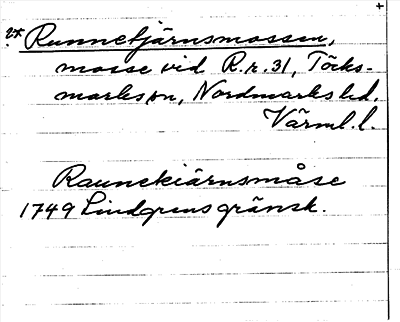 ?* Runnetjärnsmossen,
mosse vid R.r. 31, Töcks-
marks sn, Nordmarks hd.
Värml. l.
Raunekiärnsmåse
1749 Lindgrens gränsk.